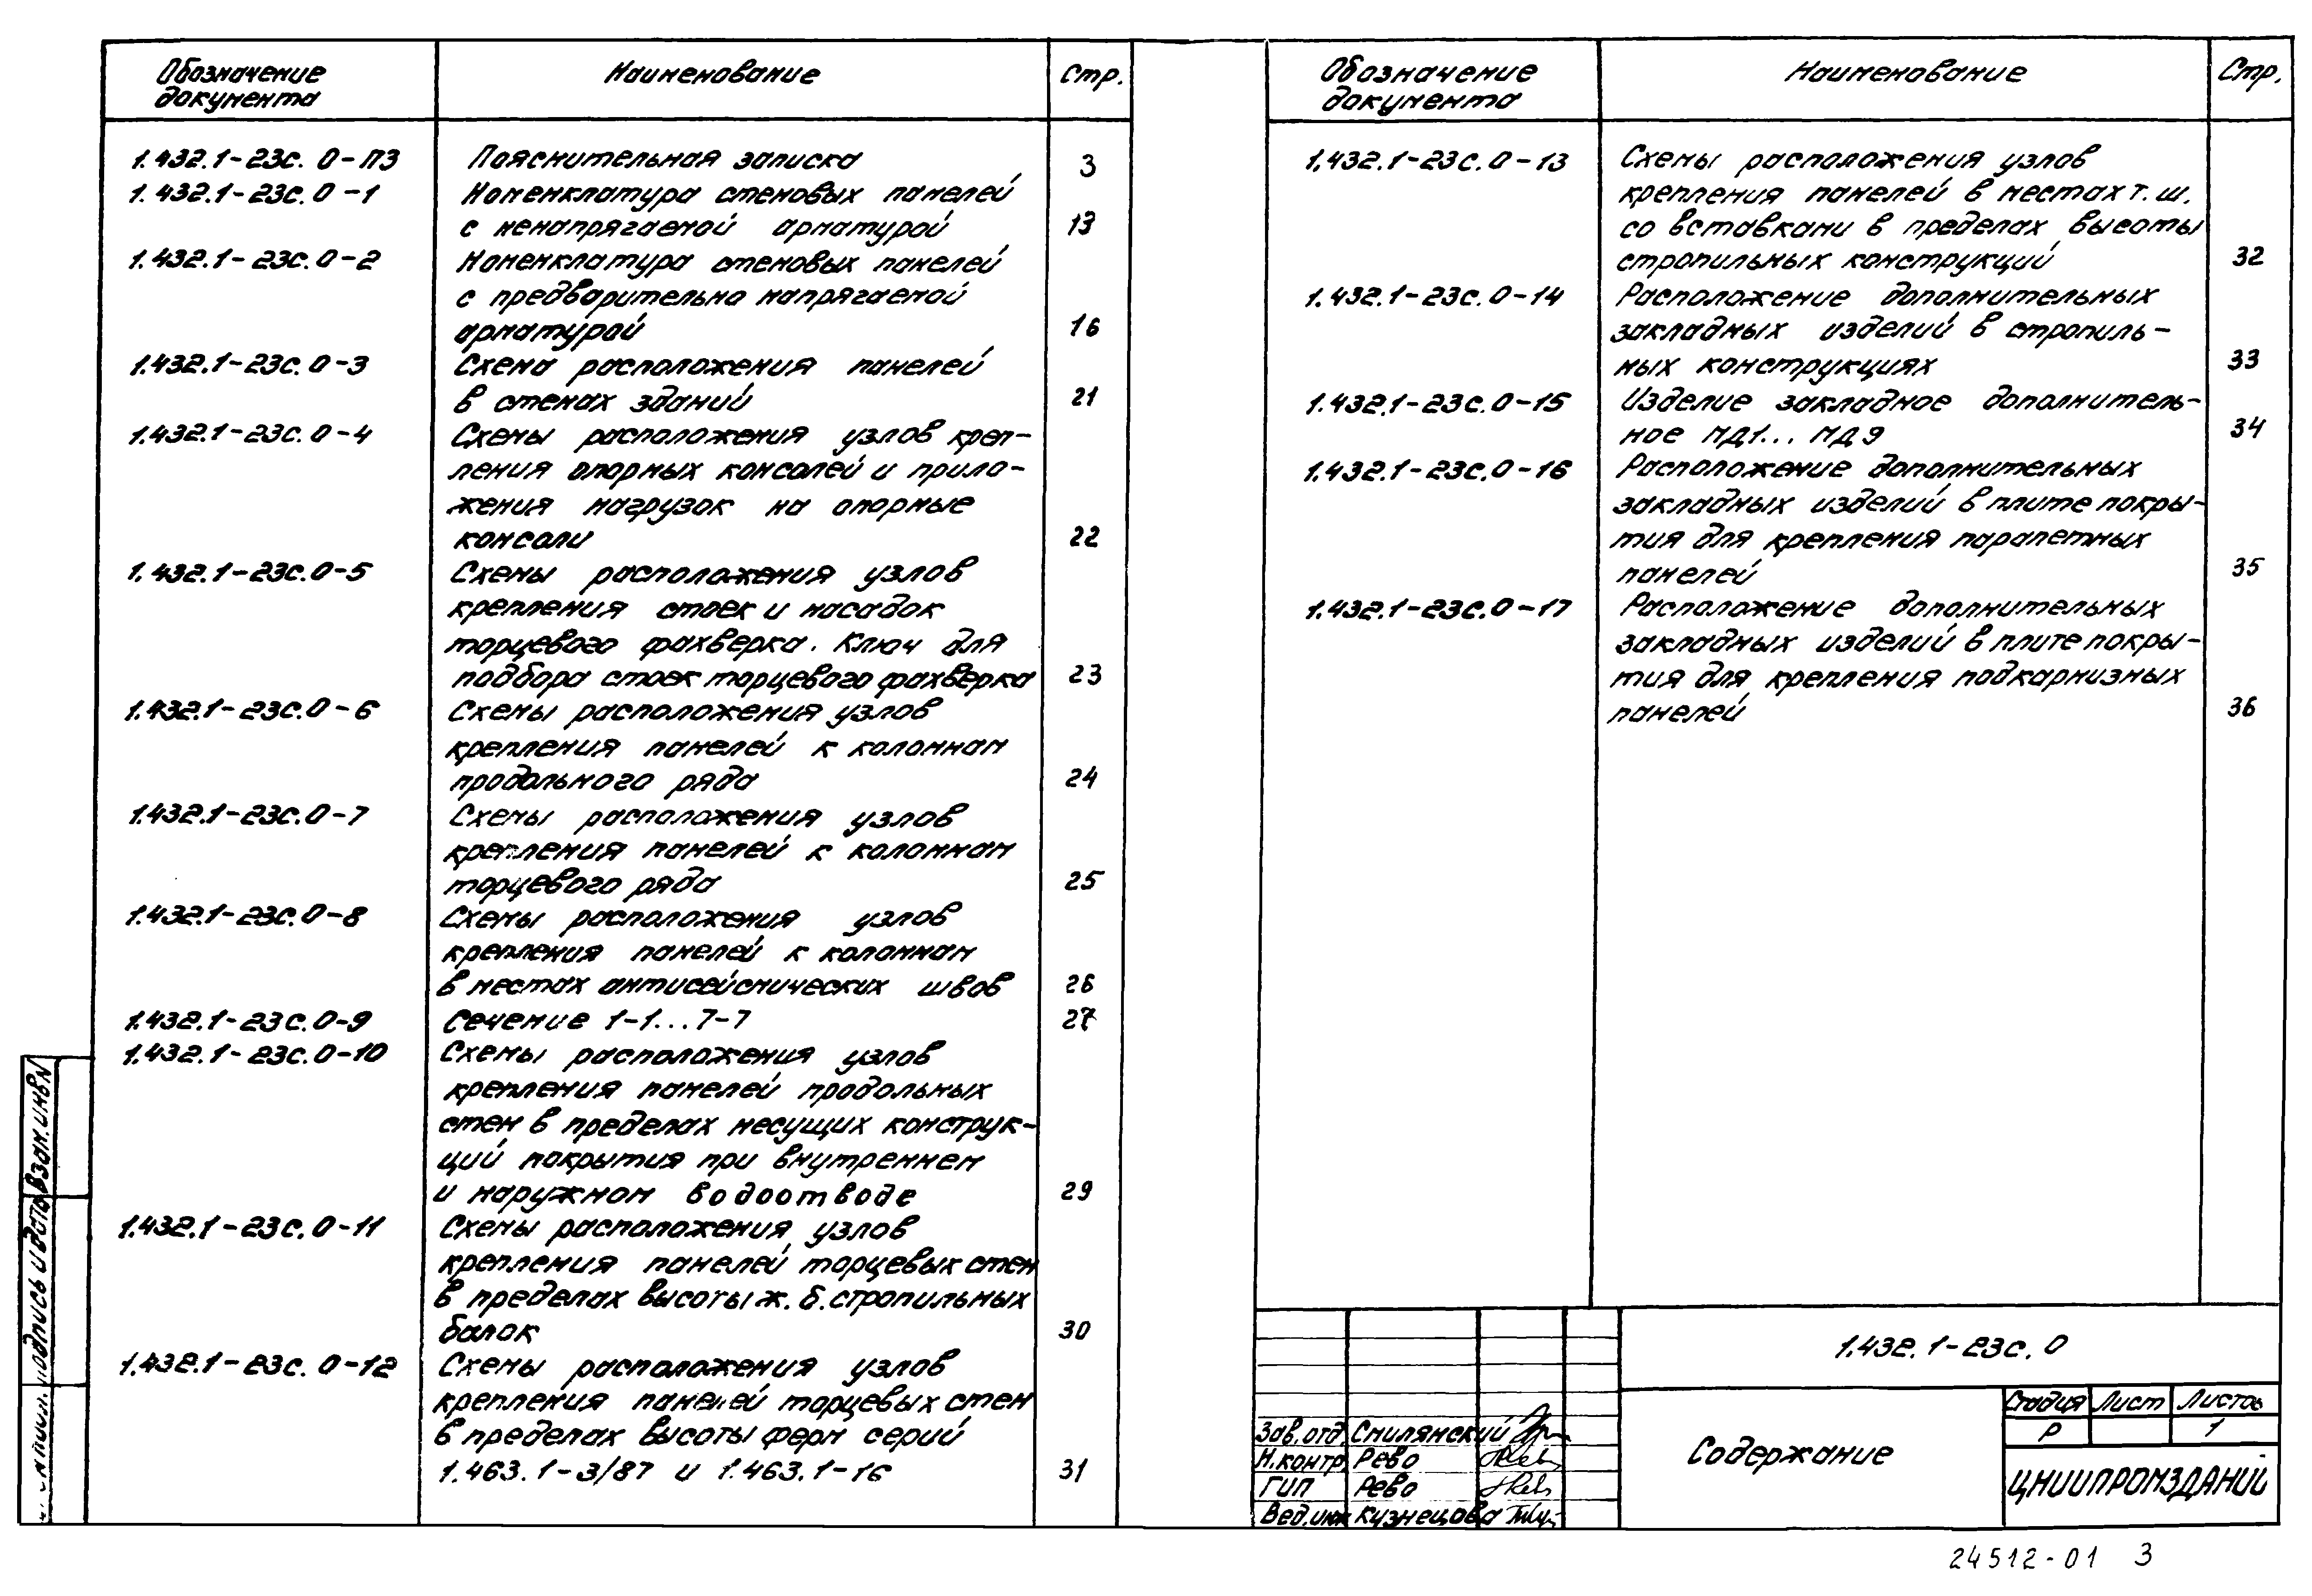 Обозначение документа Наименование Стр.
1.432.1-23с.0-ПЗ Пояснительная записка 3
1.432.1-23с.0-1 Номенклатура стеновых панелей
с ненапрягаемой арматурой 13
1.432.1-23с.0-2 Номенклатура стеновых панелей
с предварительно напрягаемой
арматурой 16
1.432.1-23с.0-3 Схема расположения панелей
в стенах зданий 21
1.432.1-23с.0-4 Схемы расположения узлов креп-
ления опорных консолей и прило-
жения нагрузок на опорные
консоли 22
1.432.1-23с.0-5 Схемы расположения узлов
крепления стоек и насадок
торцевого фахверка. Ключ для
подбора стоек торцевого фахверка 23
1.432.1-23с.0-6 Схемы расположения узлов
крепления панелей к колоннам
продольного ряда 24
1.432.1-23с.0-7 Схемы расположения узлов
крепления панелей к колоннам
торцевого ряда 25
1.432.1-23с.0-8 Схемы расположения узлов
крепления панелей к колоннам
в местах антисейсмических швов 26
1.432.1-23с.0-9 Сечение 1-1...7-7 27
1.432.1-23с.0-10 Схемы расположения узлов
крепления панелей продольных
стен в пределах несущих конструк-
ций покрытия при внутреннем
и наружном водоотводе 29
1.432.1-23с.0-11 Схемы расположения узлов
крепления панелей торцевых стен
в пределах высоты ж.б.стропильных
балок 30
1.432.1-23с.0-12 Схемы расположения узлов
крепления панелей торцевых стен
в пределах высоты ферм серий
1.463.1-3/87 и 1.463.1-16 31
Обозначение документа Наименование Стр.
1.432.1-23с.0-13 Схемы расположения узлов
крепления панелей в местах т.ш.
со вставками в пределах высоты
стропильных конструкций 32
1.432.1-23с.0-14 Расположение дополнительных
закладных изделий в стропиль-
ных конструкциях 33
1.432.1-23с.0-15 Изделие закладное дополнитель-
ное МД1...МД9 34
1.432.1-23с.0-16 Расположение дополнительных
закладных изделий в плите покры-
тия для крепления парапетных
панелей 35
1.432.1-23с.0-17 Расположение дополнительных
закладных изделий в плите покры-
тия для крепления подкарнизных
панелей 36
1.432.1-23с.0
Зав.отд. Смилянский
Н.контр. Рево
ГИП Рево
Вед.инж Кузнецова
Содержание
Стадия Лист Листов
Р 1
ЦНИИПРОМЗДАНИЙ
Взам.инв№
подпись и дата
24512-01 3